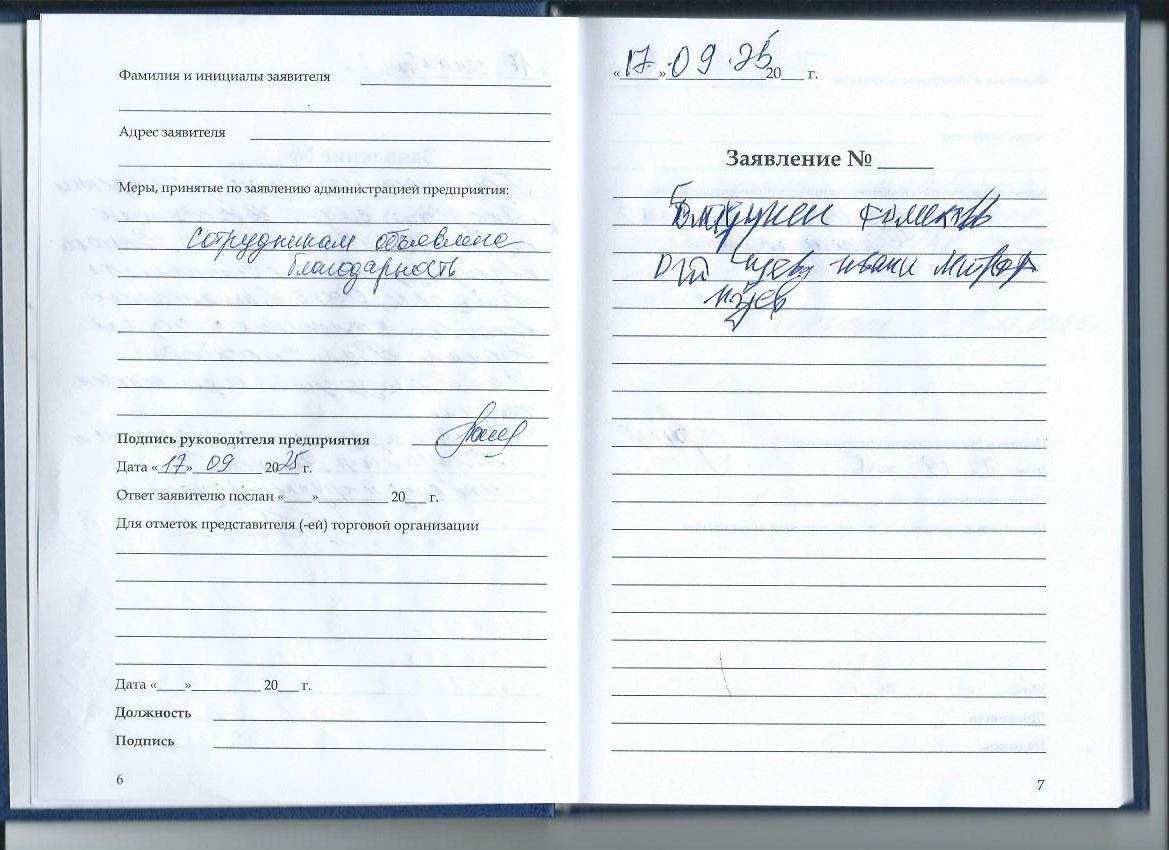 Фамилия и инициалы заявителя
Адрес заявителя
Меры, принятые по заявлению администрацией предприятия:
Сотрудникам объявлена
благодарность
Подпись руководителя предприятия
Дата «17» 09 2025 г.
Ответ заявителю послан «___» ________ 20__ г.
Для отметок представителя (-ей) торговой организации
Дата «___» ________ 20__ г.
Должность
Подпись
6
«17» 09 .25 20__ г.
Заявление № _____
7